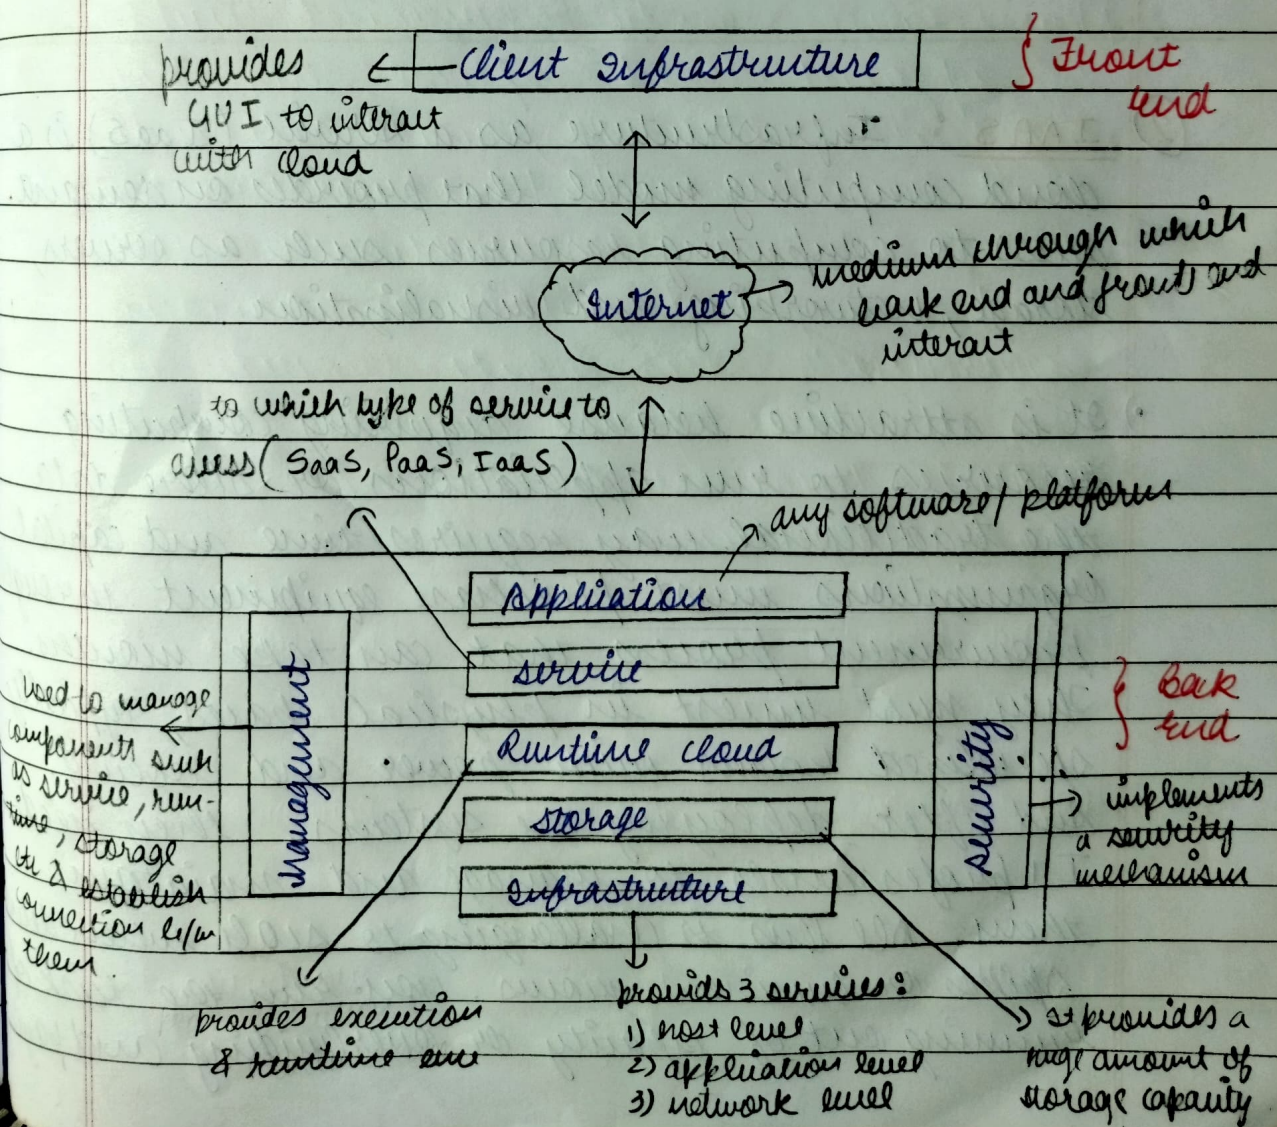 Client Infrastructure
provides
GUI to interact
with cloud
Front
end
Internet
medium through which
back end and front end
interact
to which type of service to
access (SaaS, PaaS, IaaS)
any software / platform
Application
Service
Runtime cloud
Storage
Infrastructure
Management
Security
Back
end
used to manage
components such
as service, run-
time, storage
etc & establish
connection b/w
them.
implements
a security
mechanism
provides execution
& runtime env
provids 3 services:
1) host level
2) application level
3) network level
It provides a
huge amount of
storage capacity